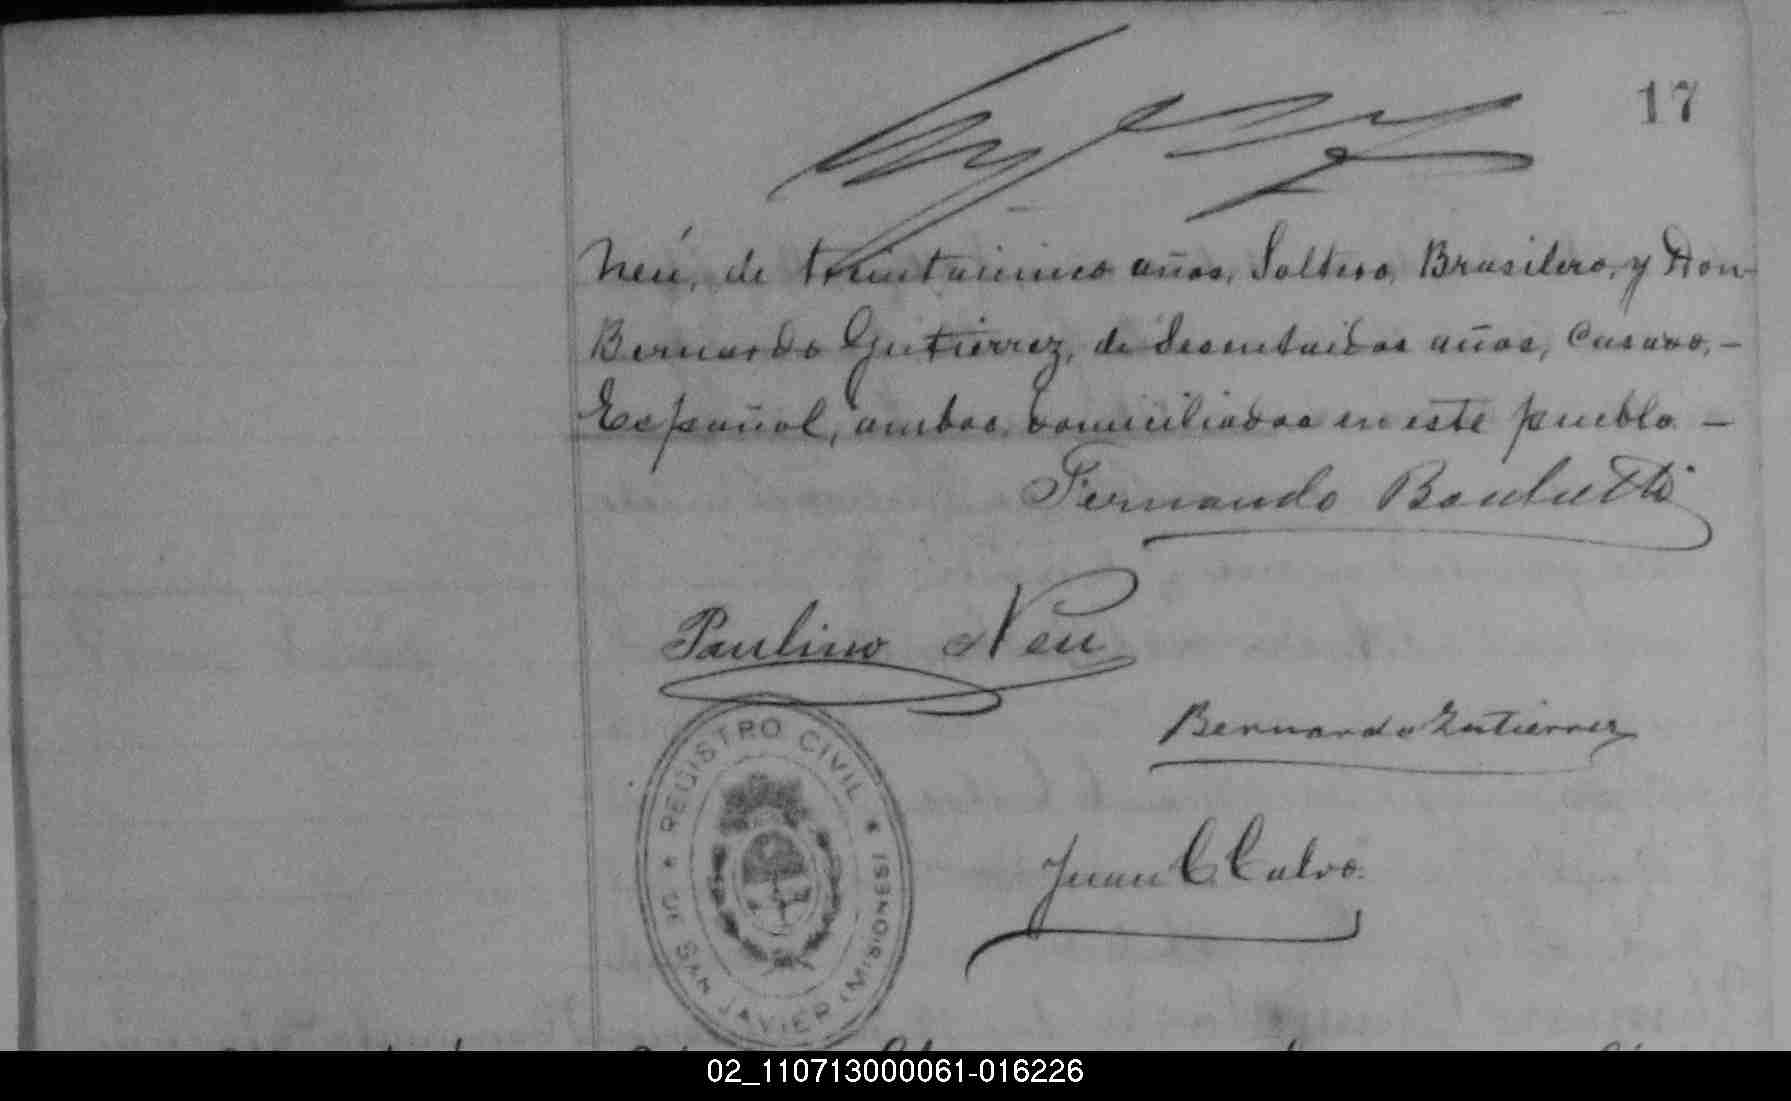 17
Neú, de treintaicinco años, Soltero, Brasilero, y Don
Bernardo Gutierrez, de sesentaidos años, Casado, —
Español, ambos domiciliados en este pueblo. —
Fernando
Paulino Neu
Bernardo Gutierrez
Juan C. Calvo.
★ REGISTRO CIVIL ★ DE SAN JAVIER (MISIONES)
02_110713000061-016226